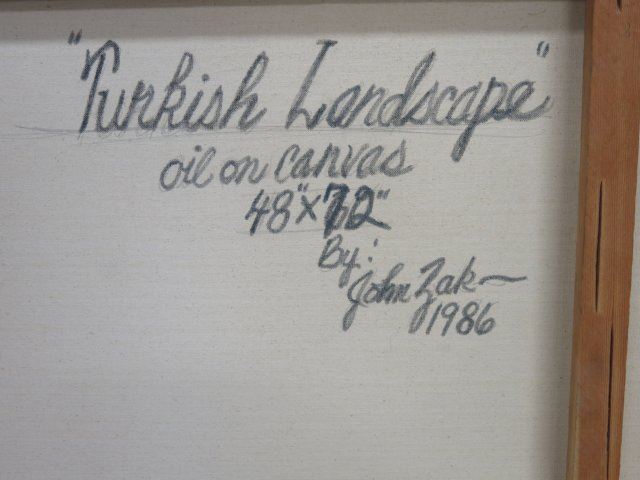 "Turkish Landscape"
oil on canvas
48"x72"
By:
John Zak
1986